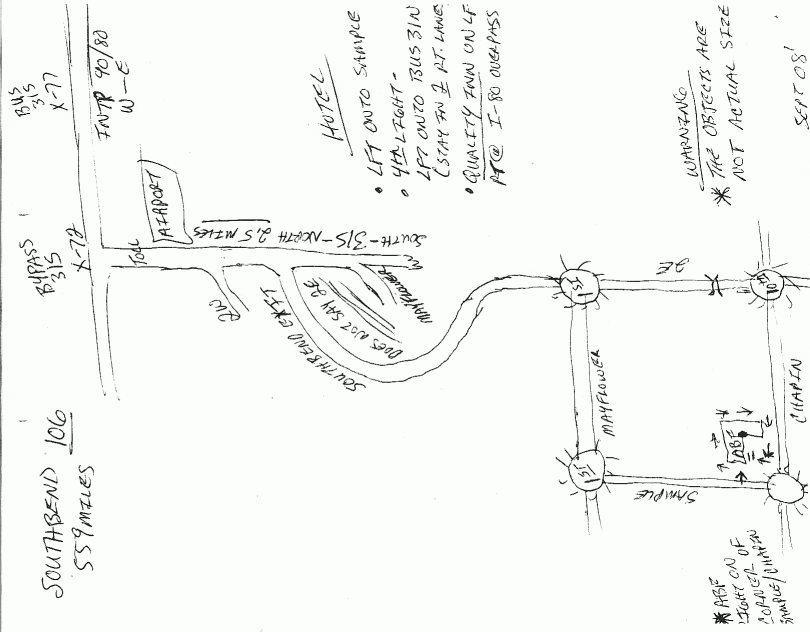 SOUTHBEND 106
559 MILES
BYPASS
31S
X-72
BUS
31S
X-77
INTP 90/80
W-E
TOLL
AIRPORT
SOUTH-31S-NORTH 2.5 MILES
2W
SOUTHBEND EXIT
DOES NOT SAY 2E
MAYFLOWER
HOTEL
• LFT ONTO SAMPLE
• 4th LIGHT-
LFT ONTO BUS 31N
(STAY IN RT. LANE
• QUALITY INN ON LF
RT @ I-80 OVERPASS
1ST
2E
10th
MAYFLOWER
CHAPIN
1ST
SAMPLE
ABF
* ABF
LIGHT ON OF
CORNER OF
SAMPLE/CHAPIN
WARNING
* THE OBJECTS ARE
NOT ACTUAL SIZE
SEPT 08'